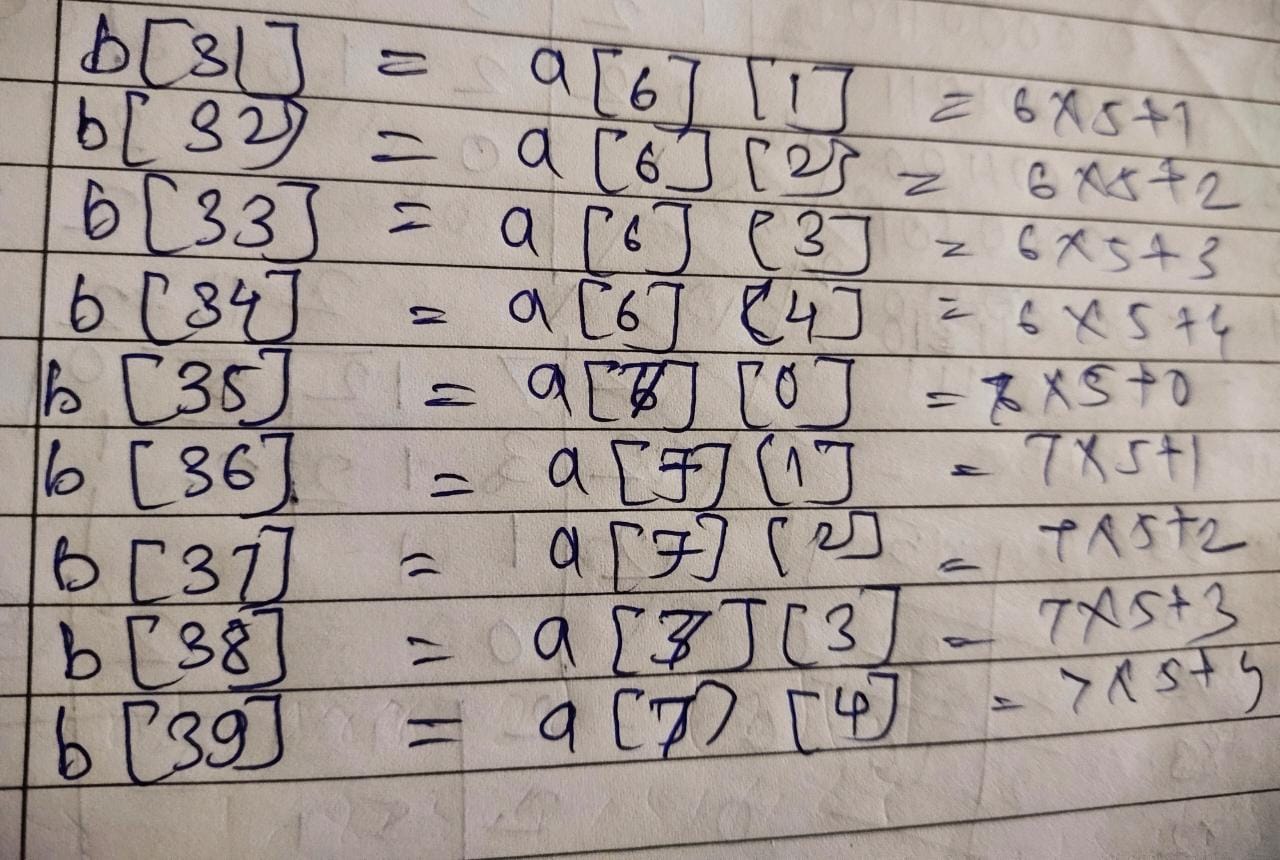 b[31] = a[6] [1] = 6×5+1
b[32] = a[6] [2] = 6×5+2
b[33] = a[6] [3] = 6×5+3
b[34] = a[6] [4] = 6×5+4
b[35] = a[7] [0] = 7×5+0
b[36] = a[7] [1] = 7×5+1
b[37] = a[7] [2] = 7×5+2
b[38] = a[7] [3] = 7×5+3
b[39] = a[7] [4] = 7×5+4